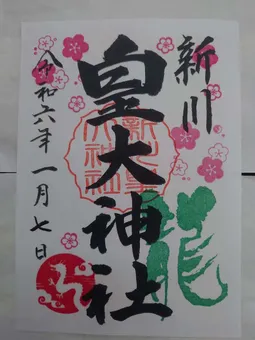 新川
皇大神社
龍
令和六年一月七日